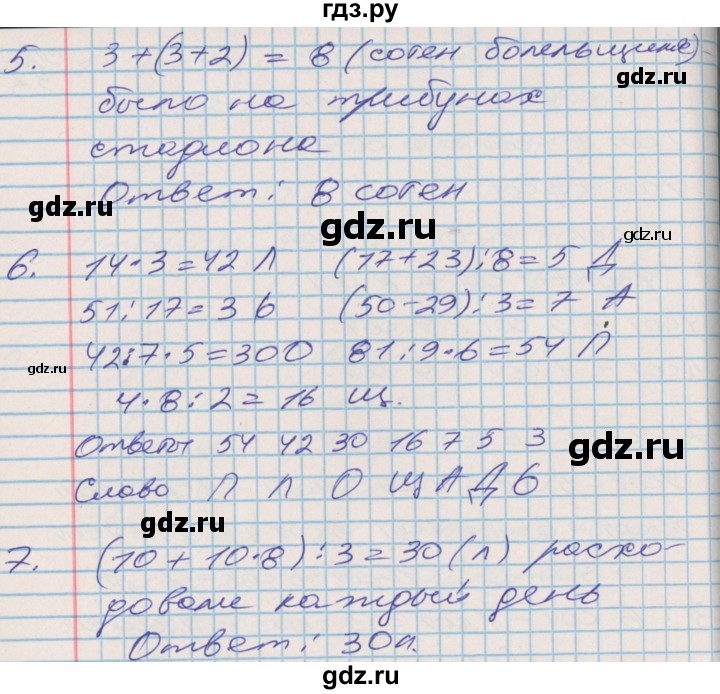 гдз.ру
5. 3+(3+2) = 8 (сотен болельщиков)
было на трибунах
стадиона
Ответ: 8 сотен
gdz.ru
gdz.ru
gdz.ru
6. 14·3=42 Л (17+23):8=5 Д
51:17=3 Ь (50-29):3=7 А
42:7·5=30 О 81:9·6=54 П
gdz.ru
4·8:2= 16 Щ.
Ответы 54 42 30 16 7 5 3
gdz.ru
Слово П Л О Щ А Д Ь
gdz.ru
7. (10+10·8):3=30(л) расхо-
gdz.ru
довали каждый день
gdz.ru
Ответ: 30л.
gdz.ru